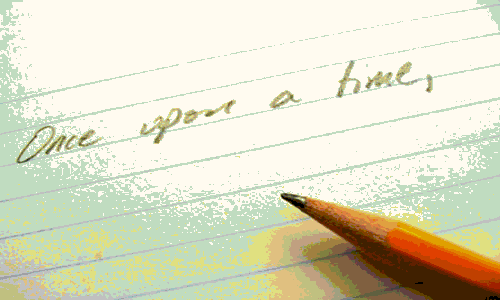 Once upon a time,